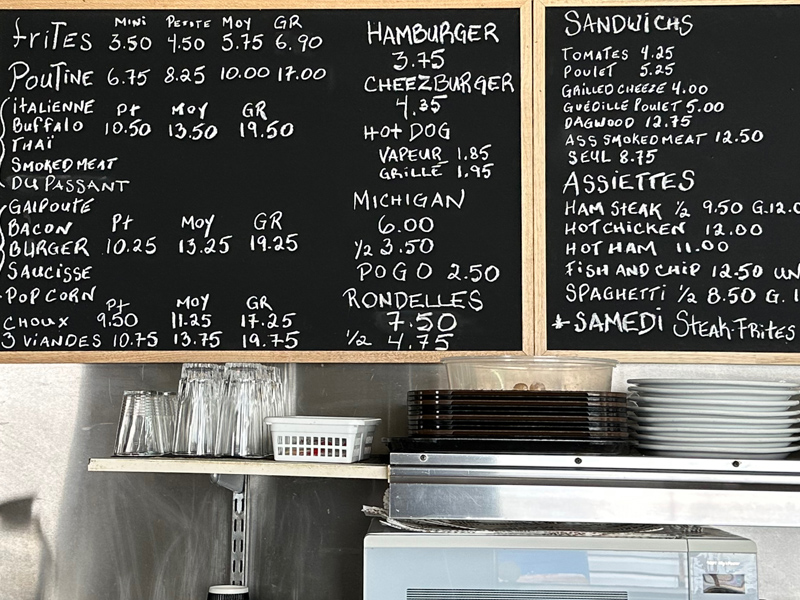 MINI PETITE MOY GR
FRITES 3.50 4.50 5.75 6.90
POUTINE 6.75 8.25 10.00 17.00
ITALIENNE Pt MOY GR
BUFFALO 10.50 13.50 19.50
THAÏ
SMOKED MEAT
DU PASSANT
GALPOUTE
BACON Pt MOY GR
BURGER 10.25 13.25 19.25
SAUCISSE
POPCORN Pt MOY GR
CHOUX 9.50 11.25 17.25
3 VIANDES 10.75 13.75 19.75
HAMBURGER
3.75
CHEEZBURGER
4.35
HOT DOG
VAPEUR 1.85
GRILLÉ 1.95
MICHIGAN
6.00
1/2 3.50
POGO 2.50
RONDELLES
7.50
1/2 4.75
SANDWICHS
TOMATES 4.25
POULET 5.25
GRILLED CHEEZE 4.00
GUÉDILLE POULET 5.00
DAGWOOD 12.75
ASS SMOKED MEAT 12.50
SEUL 8.75
ASSIETTES
HAM STEAK 1/2 9.50 G.12.0
HOT CHICKEN 12.00
HOT HAM 11.00
FISH AND CHIP 12.50 UN
SPAGHETTI 1/2 8.50 G. 1
* SAMEDI STEAK-FRITES